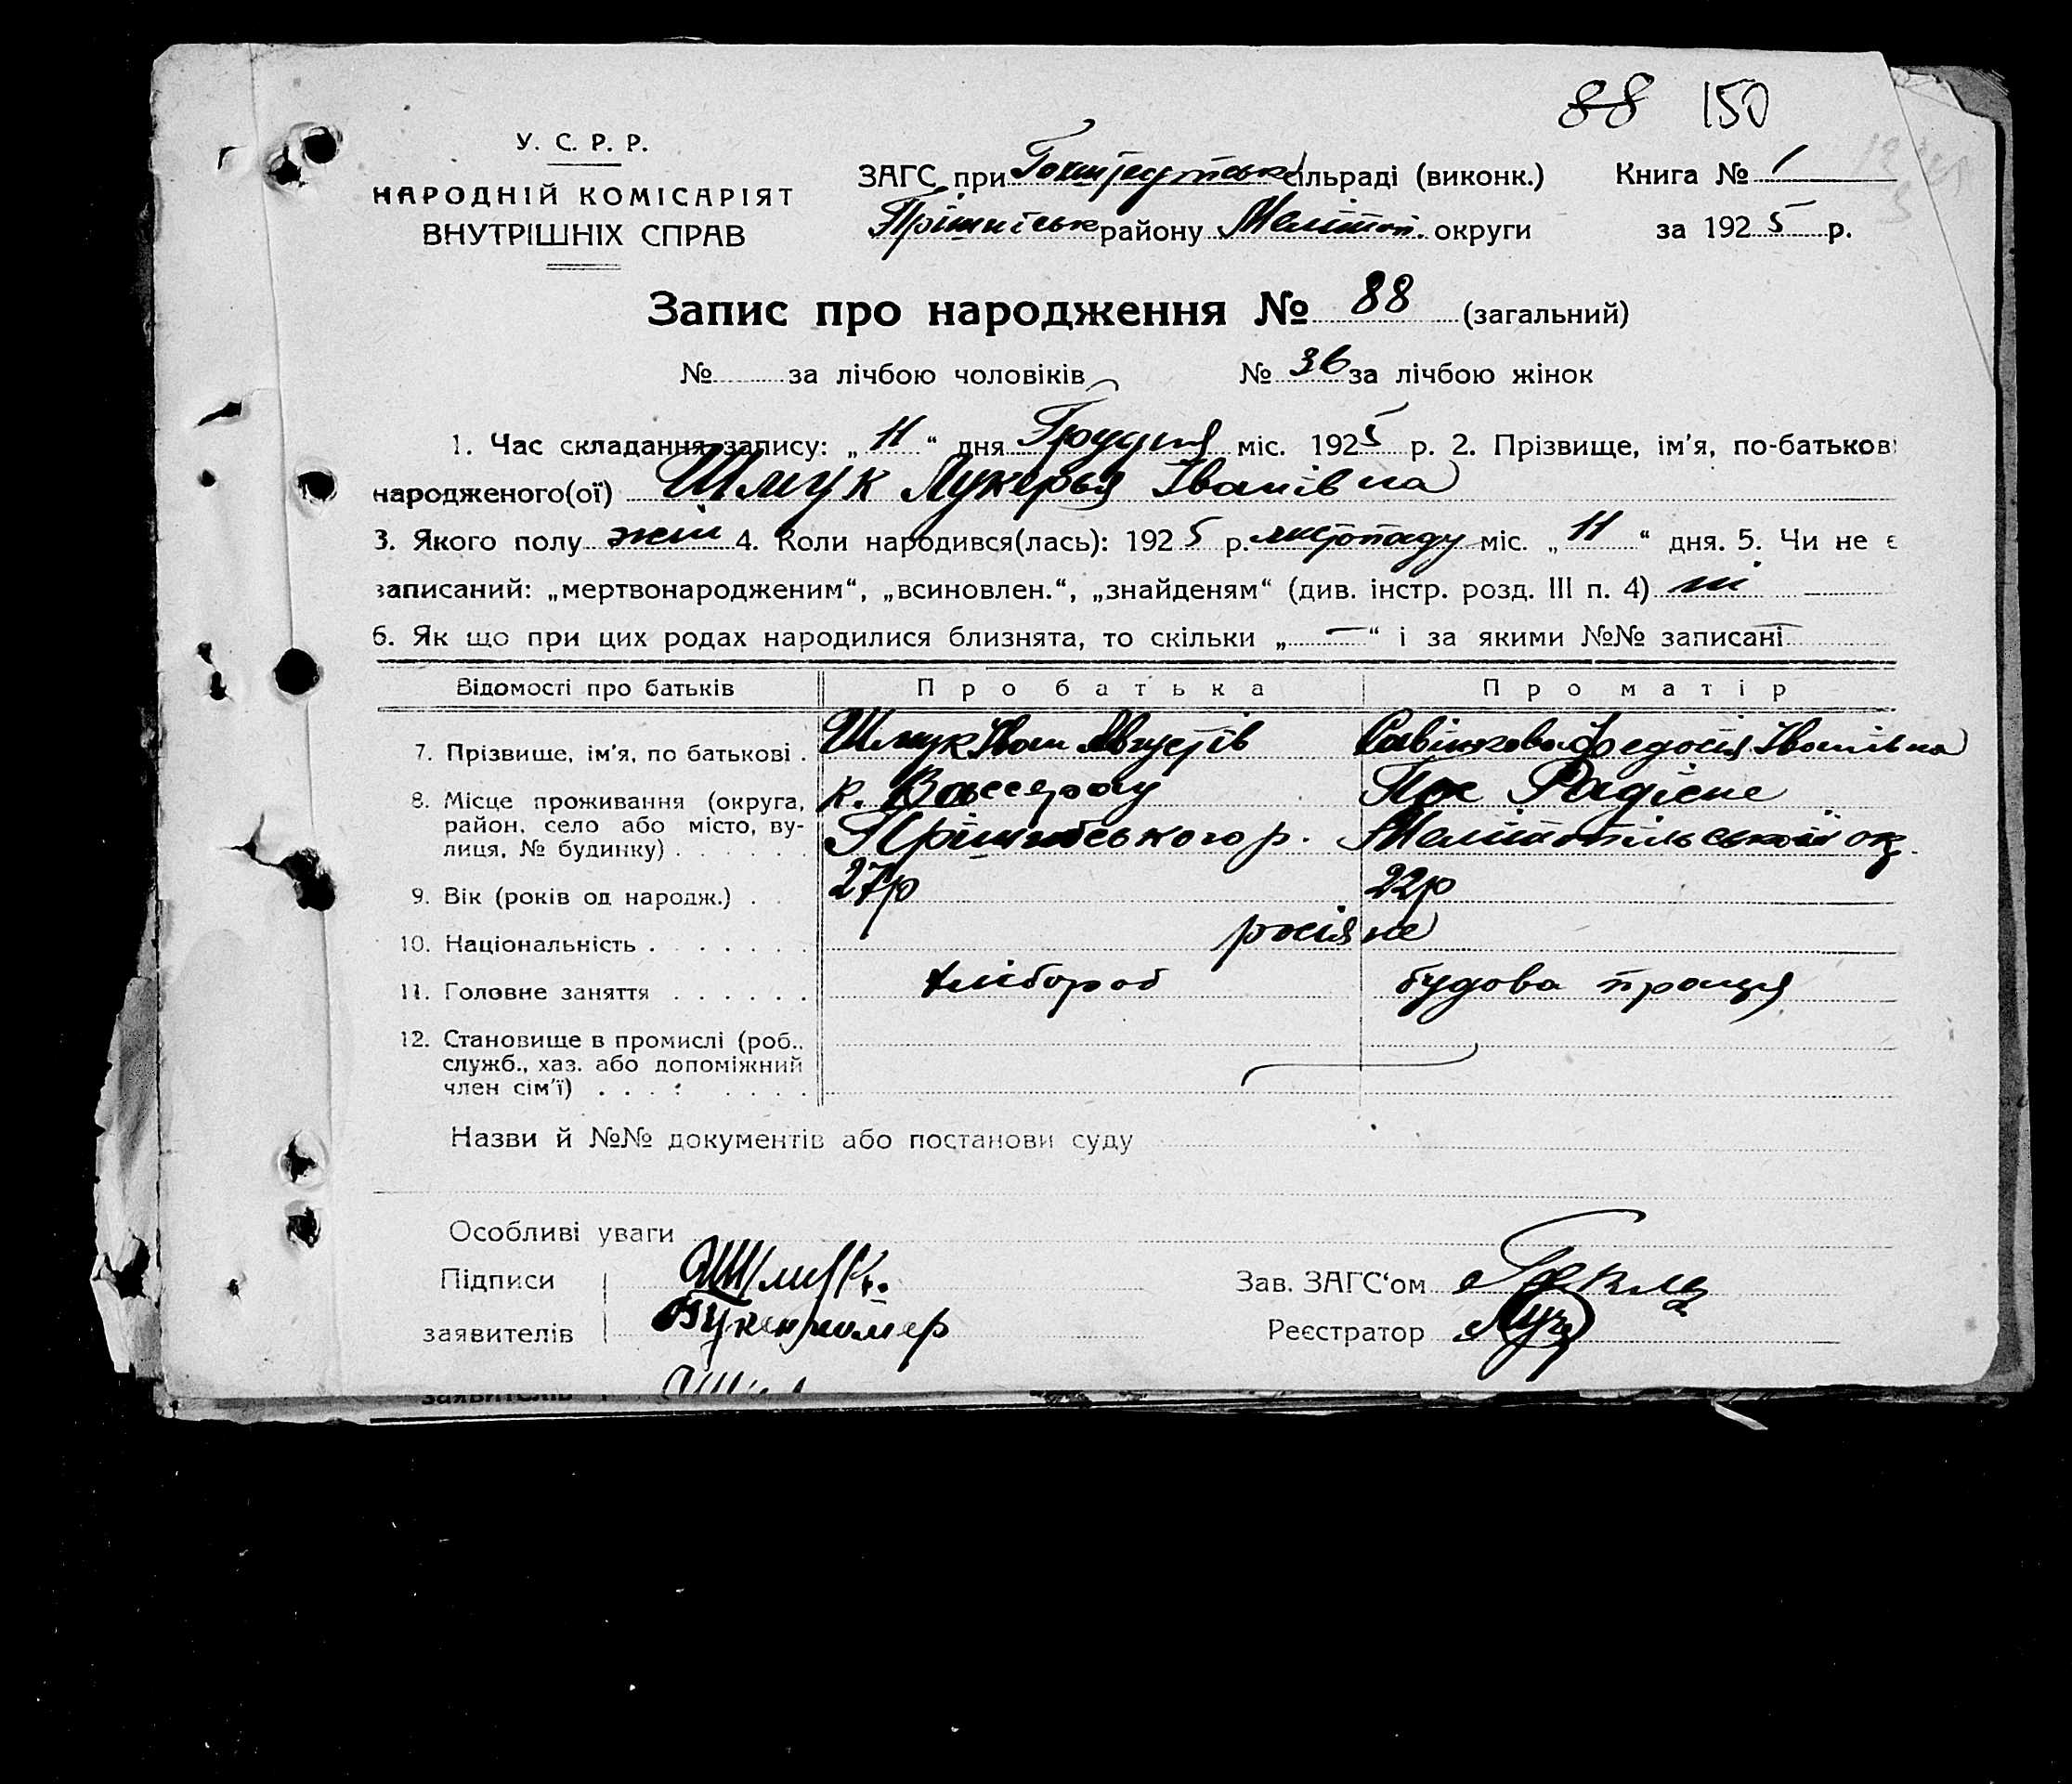 88 150
У. С. Р. Р.
НАРОДНІЙ КОМІСАРІЯТ
ВНУТРІШНІХ СПРАВ
ЗАГС при сільраді (виконк.) Книга № 1
Прішибськ району Меліտոп. округи за 1925 р.
Запис про народження № 88 (загальний)
№ за лічбою чоловіків № 36 за лічбою жінок
1. Час складання запису: „11“ дня Грудня міс. 1925 р. 2. Прізвище, ім'я, по-батькові
народженого(ої) Шмук Лукерья Іванівна
3. Якого полу жін 4. Коли народився(лась): 1925 р. листопаду міс. „11“ дня. 5. Чи не є
записаний: „мертвонародженим“, „всиновлен.“, „знайденям“ (див. інстр. розд. III п. 4) ні
6. Як що при цих родах народилися близнята, то скільки „—“ і за якими №№ записані
Відомості про батьків Про батька Про матір
7. Прізвище, ім'я, по батькові . Шмук Іван Августів Савінкова Федосія Іванівна
8. Місце проживання (округа, район, село або місто, вулиця, № будинку) . . . . . . к. Вассерау Пос Радіене
Прішибського р. Мелітопільської ок.
9. Вік (років од народж.) . . 27р 22р
10. Національність . . . . . . росіяне
11. Головне заняття . . . . . . хлібороб будова праця
12. Становище в промислі (роб., служб., хаз. або допоміжний член сім'ї) . . . . . . . .
Назви й №№ документів або постанови суду
Особливі уваги
Підписи Шмукъ. Зав. ЗАГС'ом
заявителів Реєстратор
заявителів